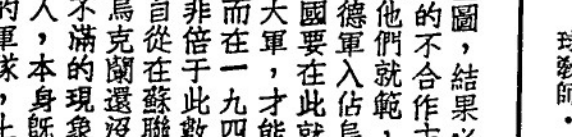 球敎師．
圖，結果
的不合作
他們就範，
德軍入佔烏
國要在此就
大軍，才能
而在一九四
非倍于此數
自從在蘇聯
烏克蘭還沒
不滿的現象
人，本身既
的軍隊，